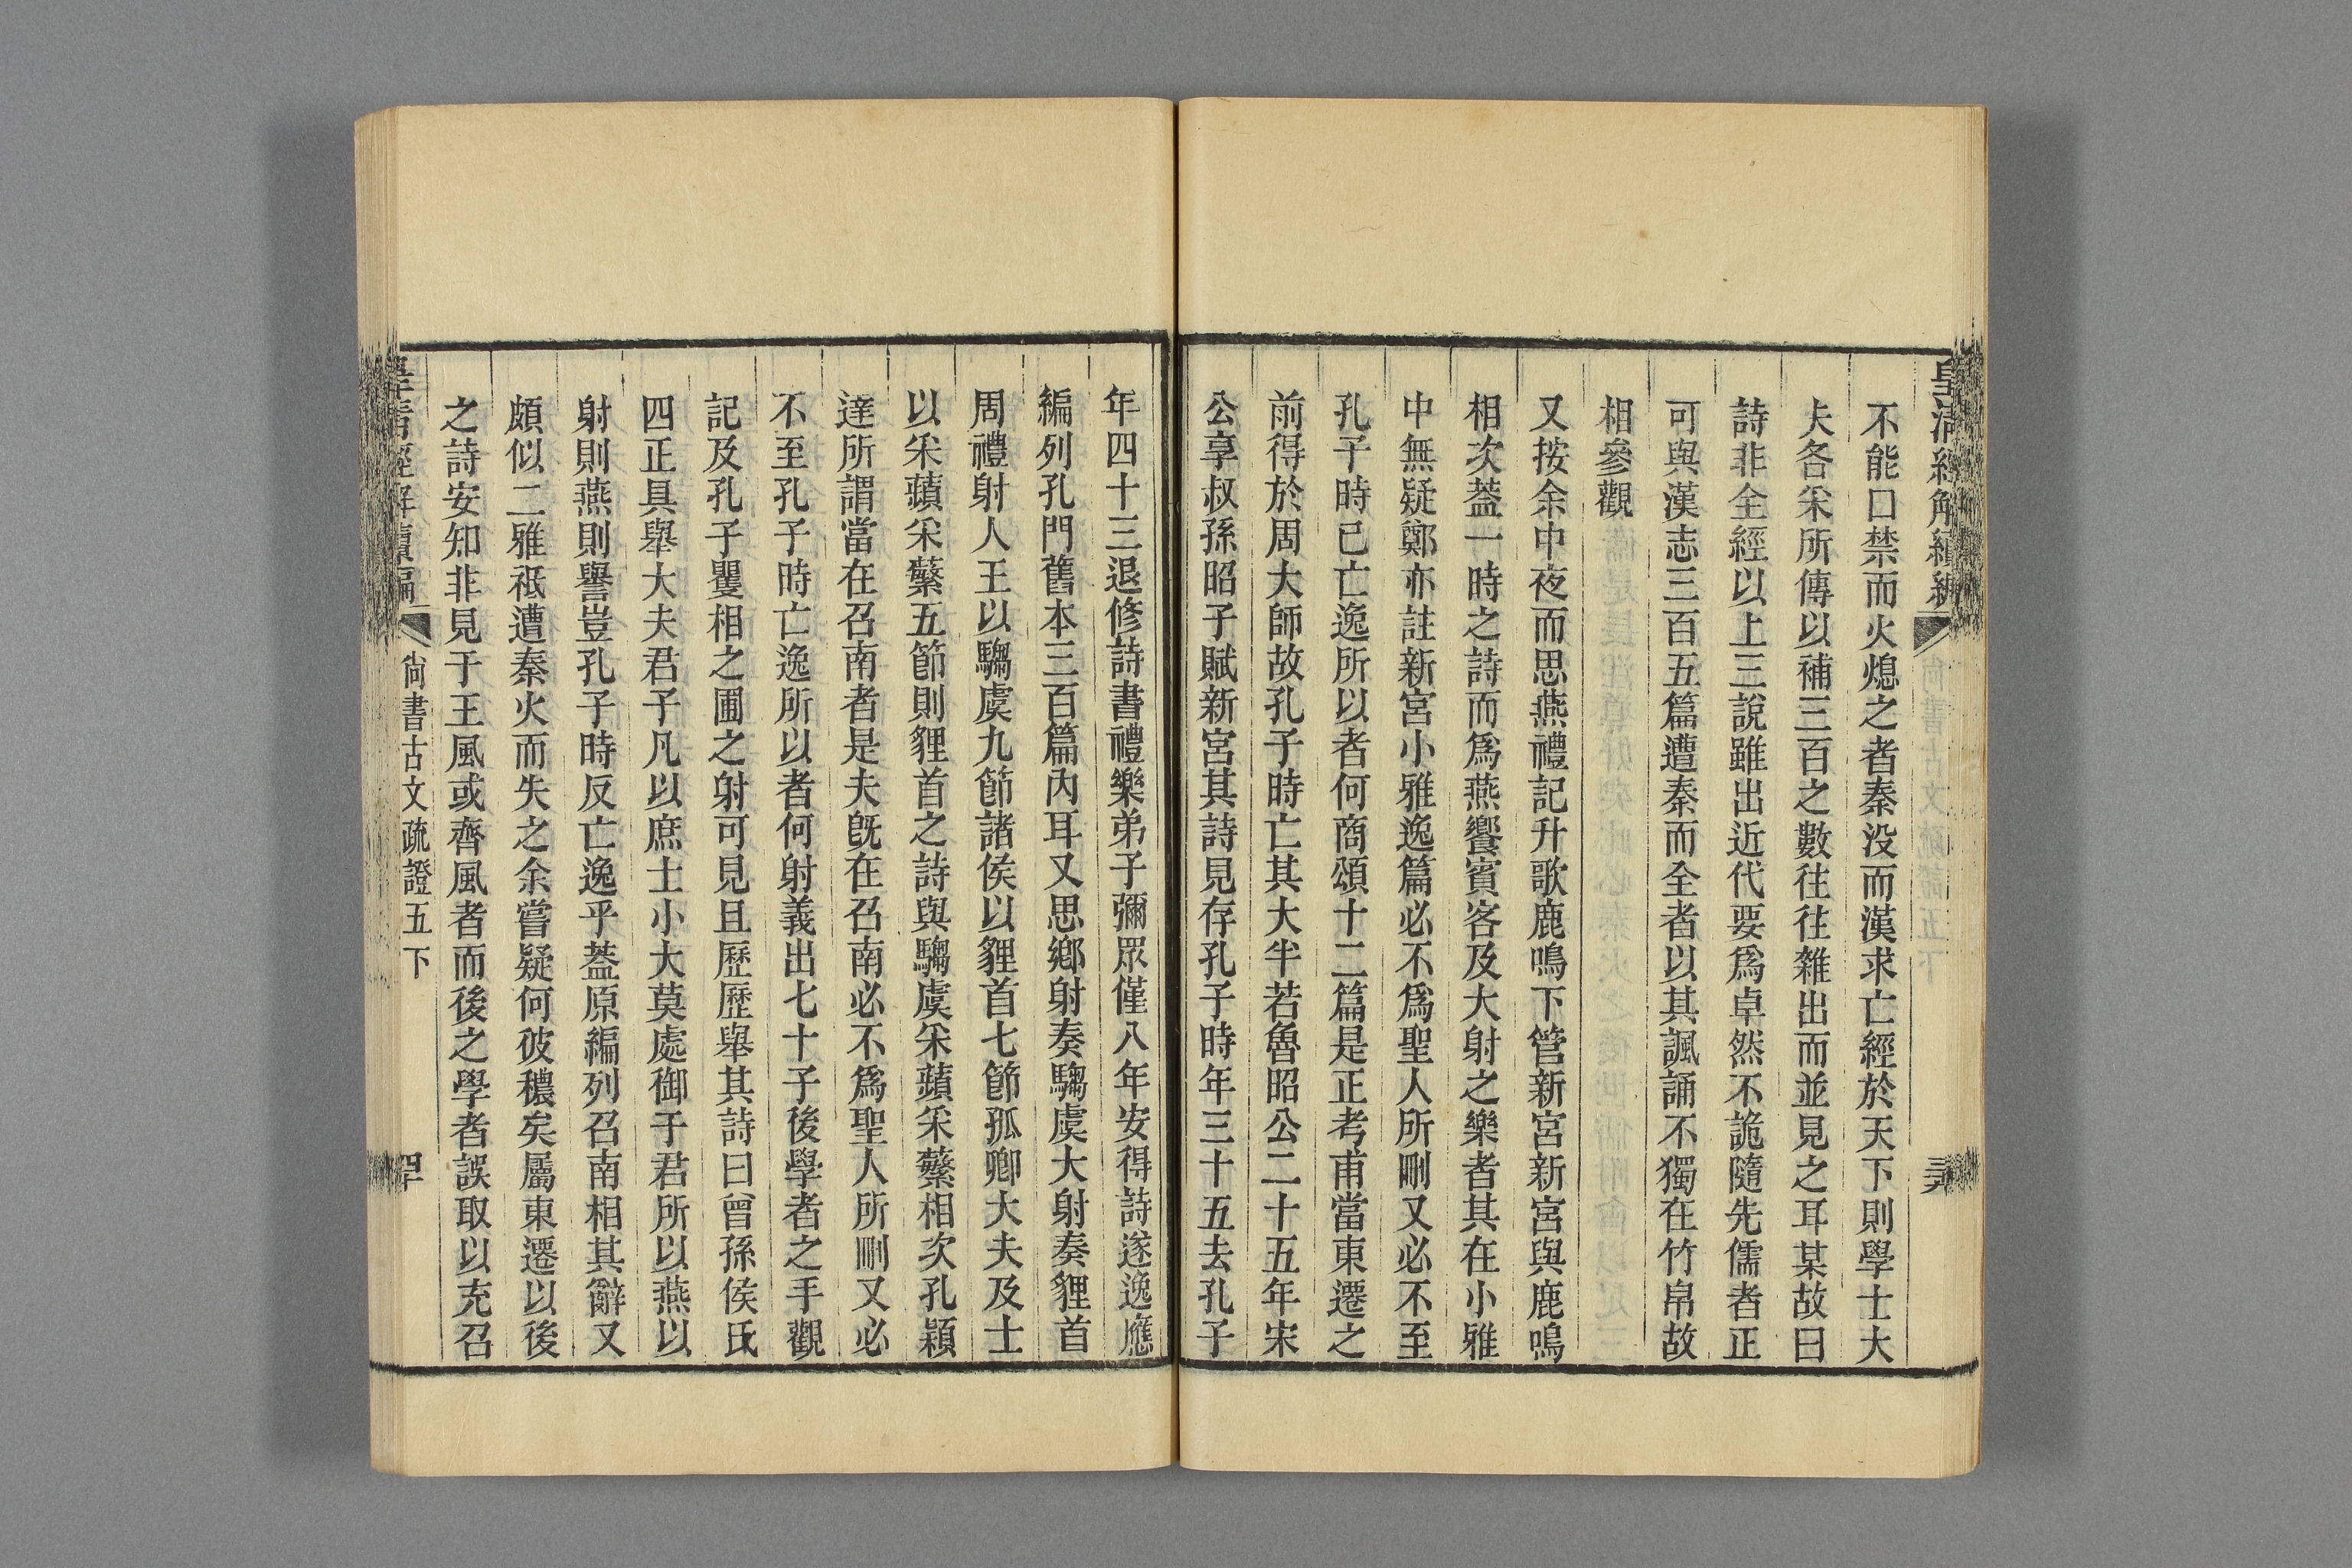 皇清經解續編
不能口禁而火熄之者秦没而漢求亡經於天下則學士大
夫各采所傳以補三百之數往往雜出而並見之耳某故曰
詩非全經以上三說雖出近代要爲卓然不詭隨先儒者正
可與漢志三百五篇遭秦而全者以其諷誦不獨在竹帛故
相參觀
又按余中夜而思燕禮記升歌鹿鳴下管新宮新宮與鹿鳴
相次蓋一時之詩而爲燕饗賓客及大射之樂者其在小雅
中無疑鄭亦註新宮小雅逸篇必不爲聖人所刪又必不至
孔子時已亡逸所以者何商頌十二篇是正考甫當東遷之
前得於周大師故孔子時亡其大半若魯昭公二十五年宋
公享叔孫昭子賦新宮其詩見存孔子時年三十五去孔子
年四十三退修詩書禮樂弟子彌眾僅八年安得詩遂逸應
編列孔門舊本三百篇內耳又思鄉射奏騶虞大射奏貍首
周禮射人王以騶虞九節諸侯以貍首七節孤卿大夫及士
以采蘋采蘩五節則貍首之詩與騶虞采蘋采蘩相次孔穎
達所謂當在召南者是夫旣在召南必不爲聖人所刪又必
不至孔子時亡逸所以者何射義出七十子後學者之手觀
記及孔子矍相之圃之射可見且歷歷舉其詩曰曾孫侯氏
四正具舉大夫君子凡以庶士小大莫處御于君所以燕以
射則燕則譽豈孔子時反亡逸乎蓋原編列召南相其辭又
頗似二雅祗遭秦火而失之余嘗疑何彼穠矣屬東遷以後
之詩安知非見于王風或齊風者而後之學者誤取以充召
皇清經解續編
尙書古文疏證五下